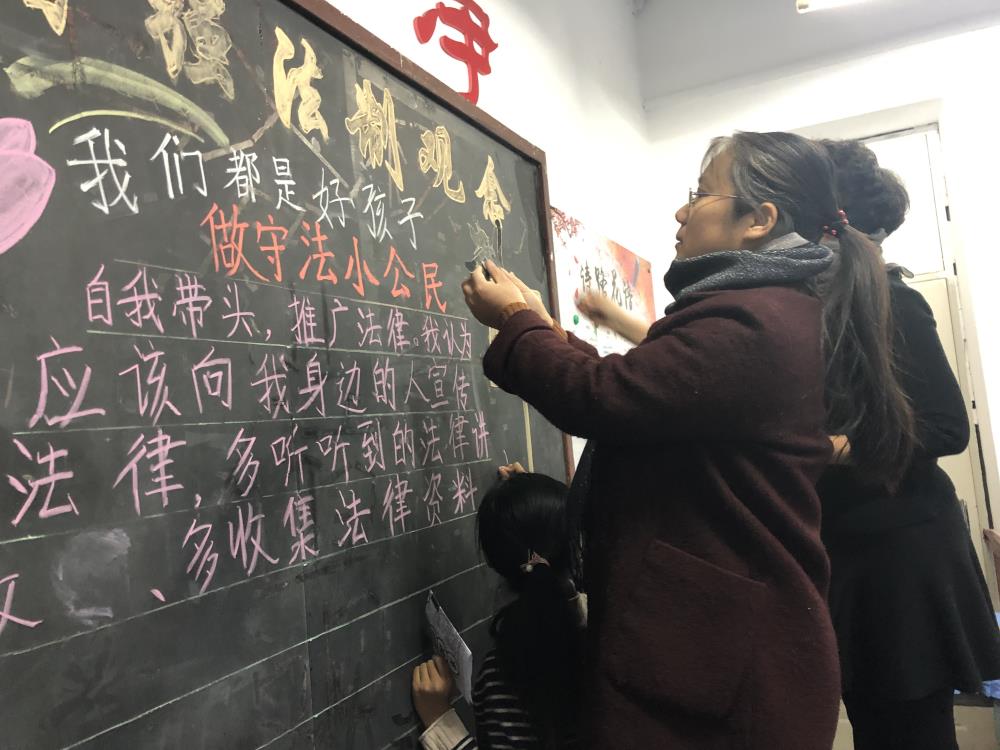 强法制观念
争
我们都是好孩子
做守法小公民
自我带头，推广法律。我认为
应该向我身边的人宣传
法律，多听听到的法律讲
、多收集法律资料